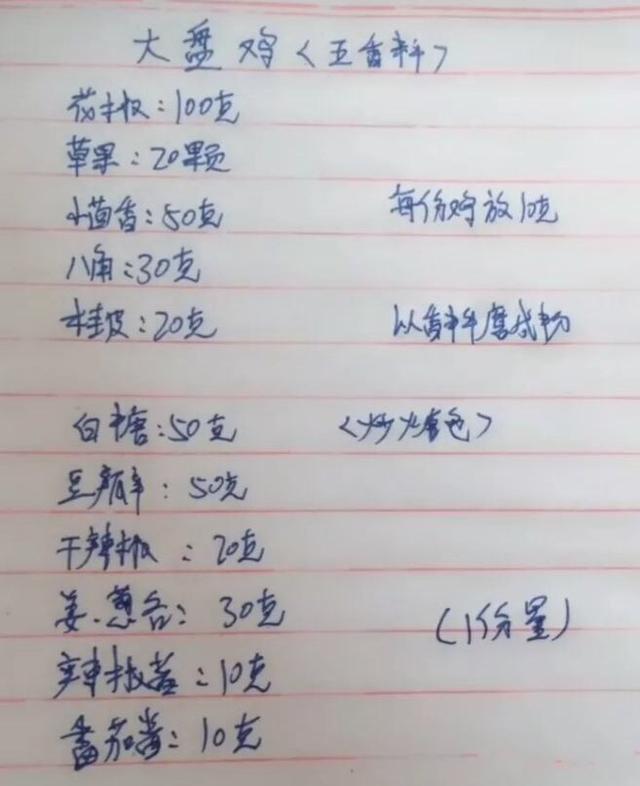 大盘鸡<五香料>
花椒：100克
草果：20颗
小茴香：50克 每份鸡放10克
八角：30克
桂皮：20克 以香料磨成粉
白糖：50克 <炒火色>
豆瓣：50克
干辣椒：20克
姜.葱各：30克 (1份量)
辣椒酱：10克
番茄酱：10克